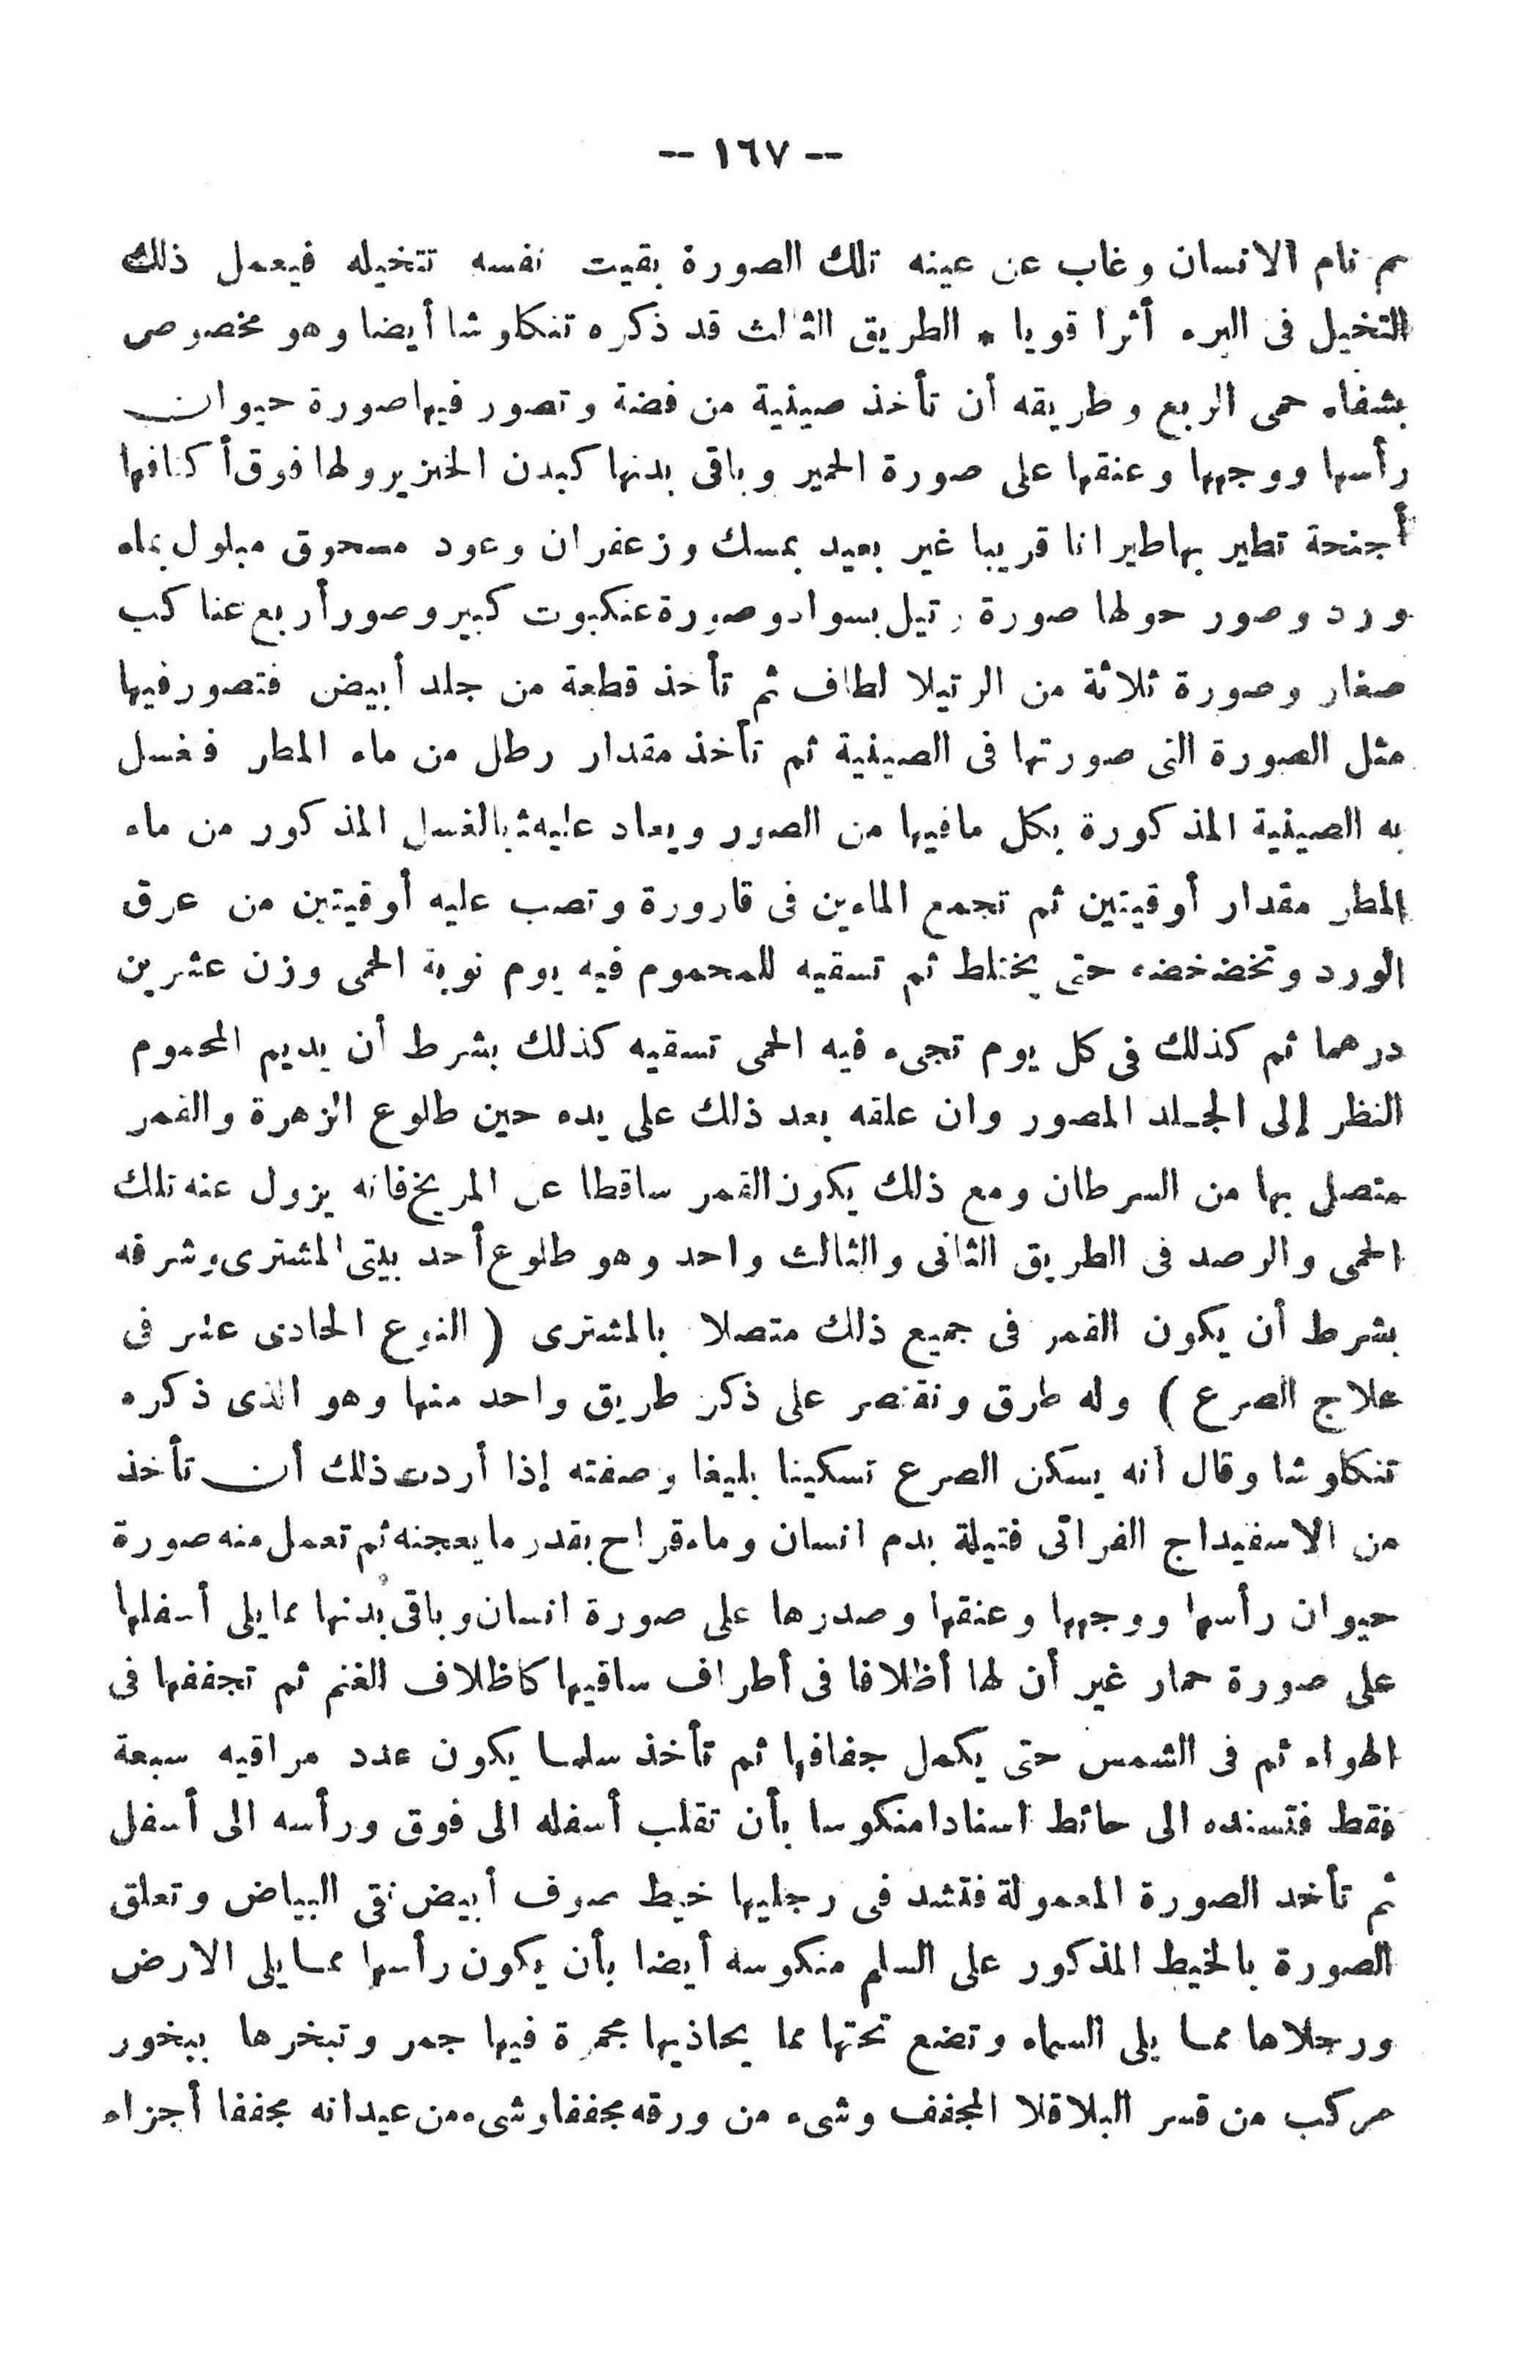 -- ١٦٧ --
ثم نام الانسان وغاب عن عينه تلك الصورة بقيت نفسه تتخيله فيعمل ذلك
التخيل فى البرء أثرا قويا * الطريق الثالث قد ذكره تنكلوشا أيضا وهو مخصوص
بشفاء حمى الربع وطريقه أن تأخذ صينية من فضة وتصور فيها صورة حيوان
رأسها ووجهها وعنقها على صورة الحمير وباقى بدنها كبدن الخنزير ولها فوق أكتافها
أجنحة تطير بها طيرانا قريبا غير بعيد بمسك وزعفران وعود مسحوق مبلول بماء
ورد وصور حولها صورة رتيل بسواد وصورة عنكبوت كبير وصور أربع عناكب
صغار وصورة ثلاثة من الرتيلا لطاف ثم تأخذ قطعة من جلد أبيض فتصور فيها
مثل الصورة التى صورتها فى الصينية ثم تأخذ مقدار رطل من ماء المطر فغسل
به الصينية المذكورة بكل مافيها من الصور ويعاد بالغسل المذكور من ماء
المطر مقدار أوقيتين ثم تجمع الماءين فى قارورة وتصب عليه أوقيتين من عرق
الورد وتخضخضه حتى يختلط ثم تسقيه للمحموم فيه يوم نوبة الحمى وزن عشرين
درهما ثم كذلك فى كل يوم تجىء فيه الحمى تسقيه كذلك بشرط أن يديم المحموم
النظر إلى الجلد المصور وان علقه بعد ذلك على يده حين طلوع الزهرة والقمر
متصل بها من السرطان ومع ذلك يكون القمر ساقطا عن المريخ فانه يزول عنه تلك
الحمى والرصد فى الطريق الثانى والثالث واحد وهو طلوع أحد بيتى المشترى وشرفه
بشرط أن يكون القمر فى جميع ذلك متصلا بالمشترى ( النوع الحادى عشر فى
علاج الصرع ) وله طرق ونقتصر على ذكر طريق واحد منها وهو الذى ذكره
تنكلوشا وقال انه يسكن الصرع تسكينا بليغا وصفته إذا أردت ذلك أن تأخذ
من الاسفيداج الفراتى فتيلة بدم انسان وماء قراح بقدر ما يعجنه ثم تعمل منه صورة
حيوان رأسها ووجهها وعنقها وصدرها على صورة انسان وباقى بدنها مما يلى أسفلها
على صورة حمار غير أن لها أظلافا فى أطراف ساقيها كاظلاف الغنم ثم تجففها فى
الهواء ثم فى الشمس حتى يكمل جفافها ثم تأخذ سلما يكون عدد مراقيه سبعة
فقط فتسنده الى حائط اسنادا منكوسا بأن تقلب أسفله الى فوق ورأسه الى أسفل
ثم تأخد الصورة المعمولة فتشد فى رجليها خيط صوف أبيض نقى البياض وتعلق
الصورة بالخيط المذكور على السلم منكوسه أيضا بأن يكون رأسها مما يلى الارض
ورجلاها مما يلى السماء وتضع تحتها مما يحاذيها مجمرة فيها جمر وتبخرها ببخور
مركب من قسر البلاقلا المجفف وشىء من ورقه مجففا وشىء من عيدانه مجففا أجزاء